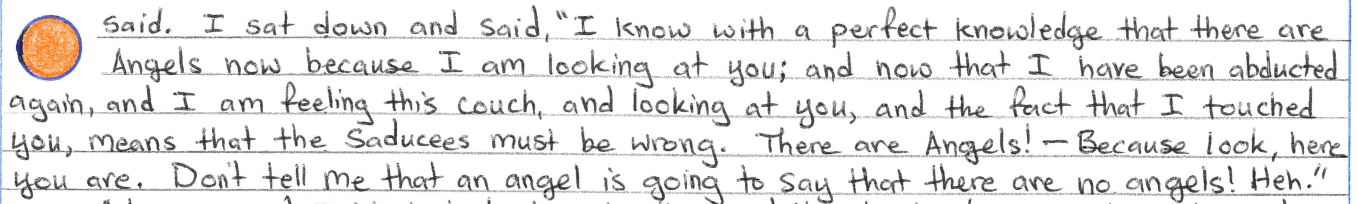 said. I sat down and said, "I know with a perfect knowledge that there are
Angels now because I am looking at you; and now that I have been abducted
again, and I am feeling this couch, and looking at you, and the fact that I touched
you, means that the Saducees must be wrong. There are Angels! — Because look, here
you are. Don't tell me that an angel is going to say that there are no angels! Heh."